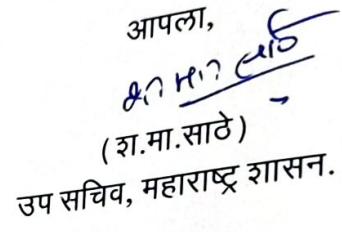 आपला,
श मा साठे
(श.मा.साठे)
उप सचिव, महाराष्ट्र शासन.